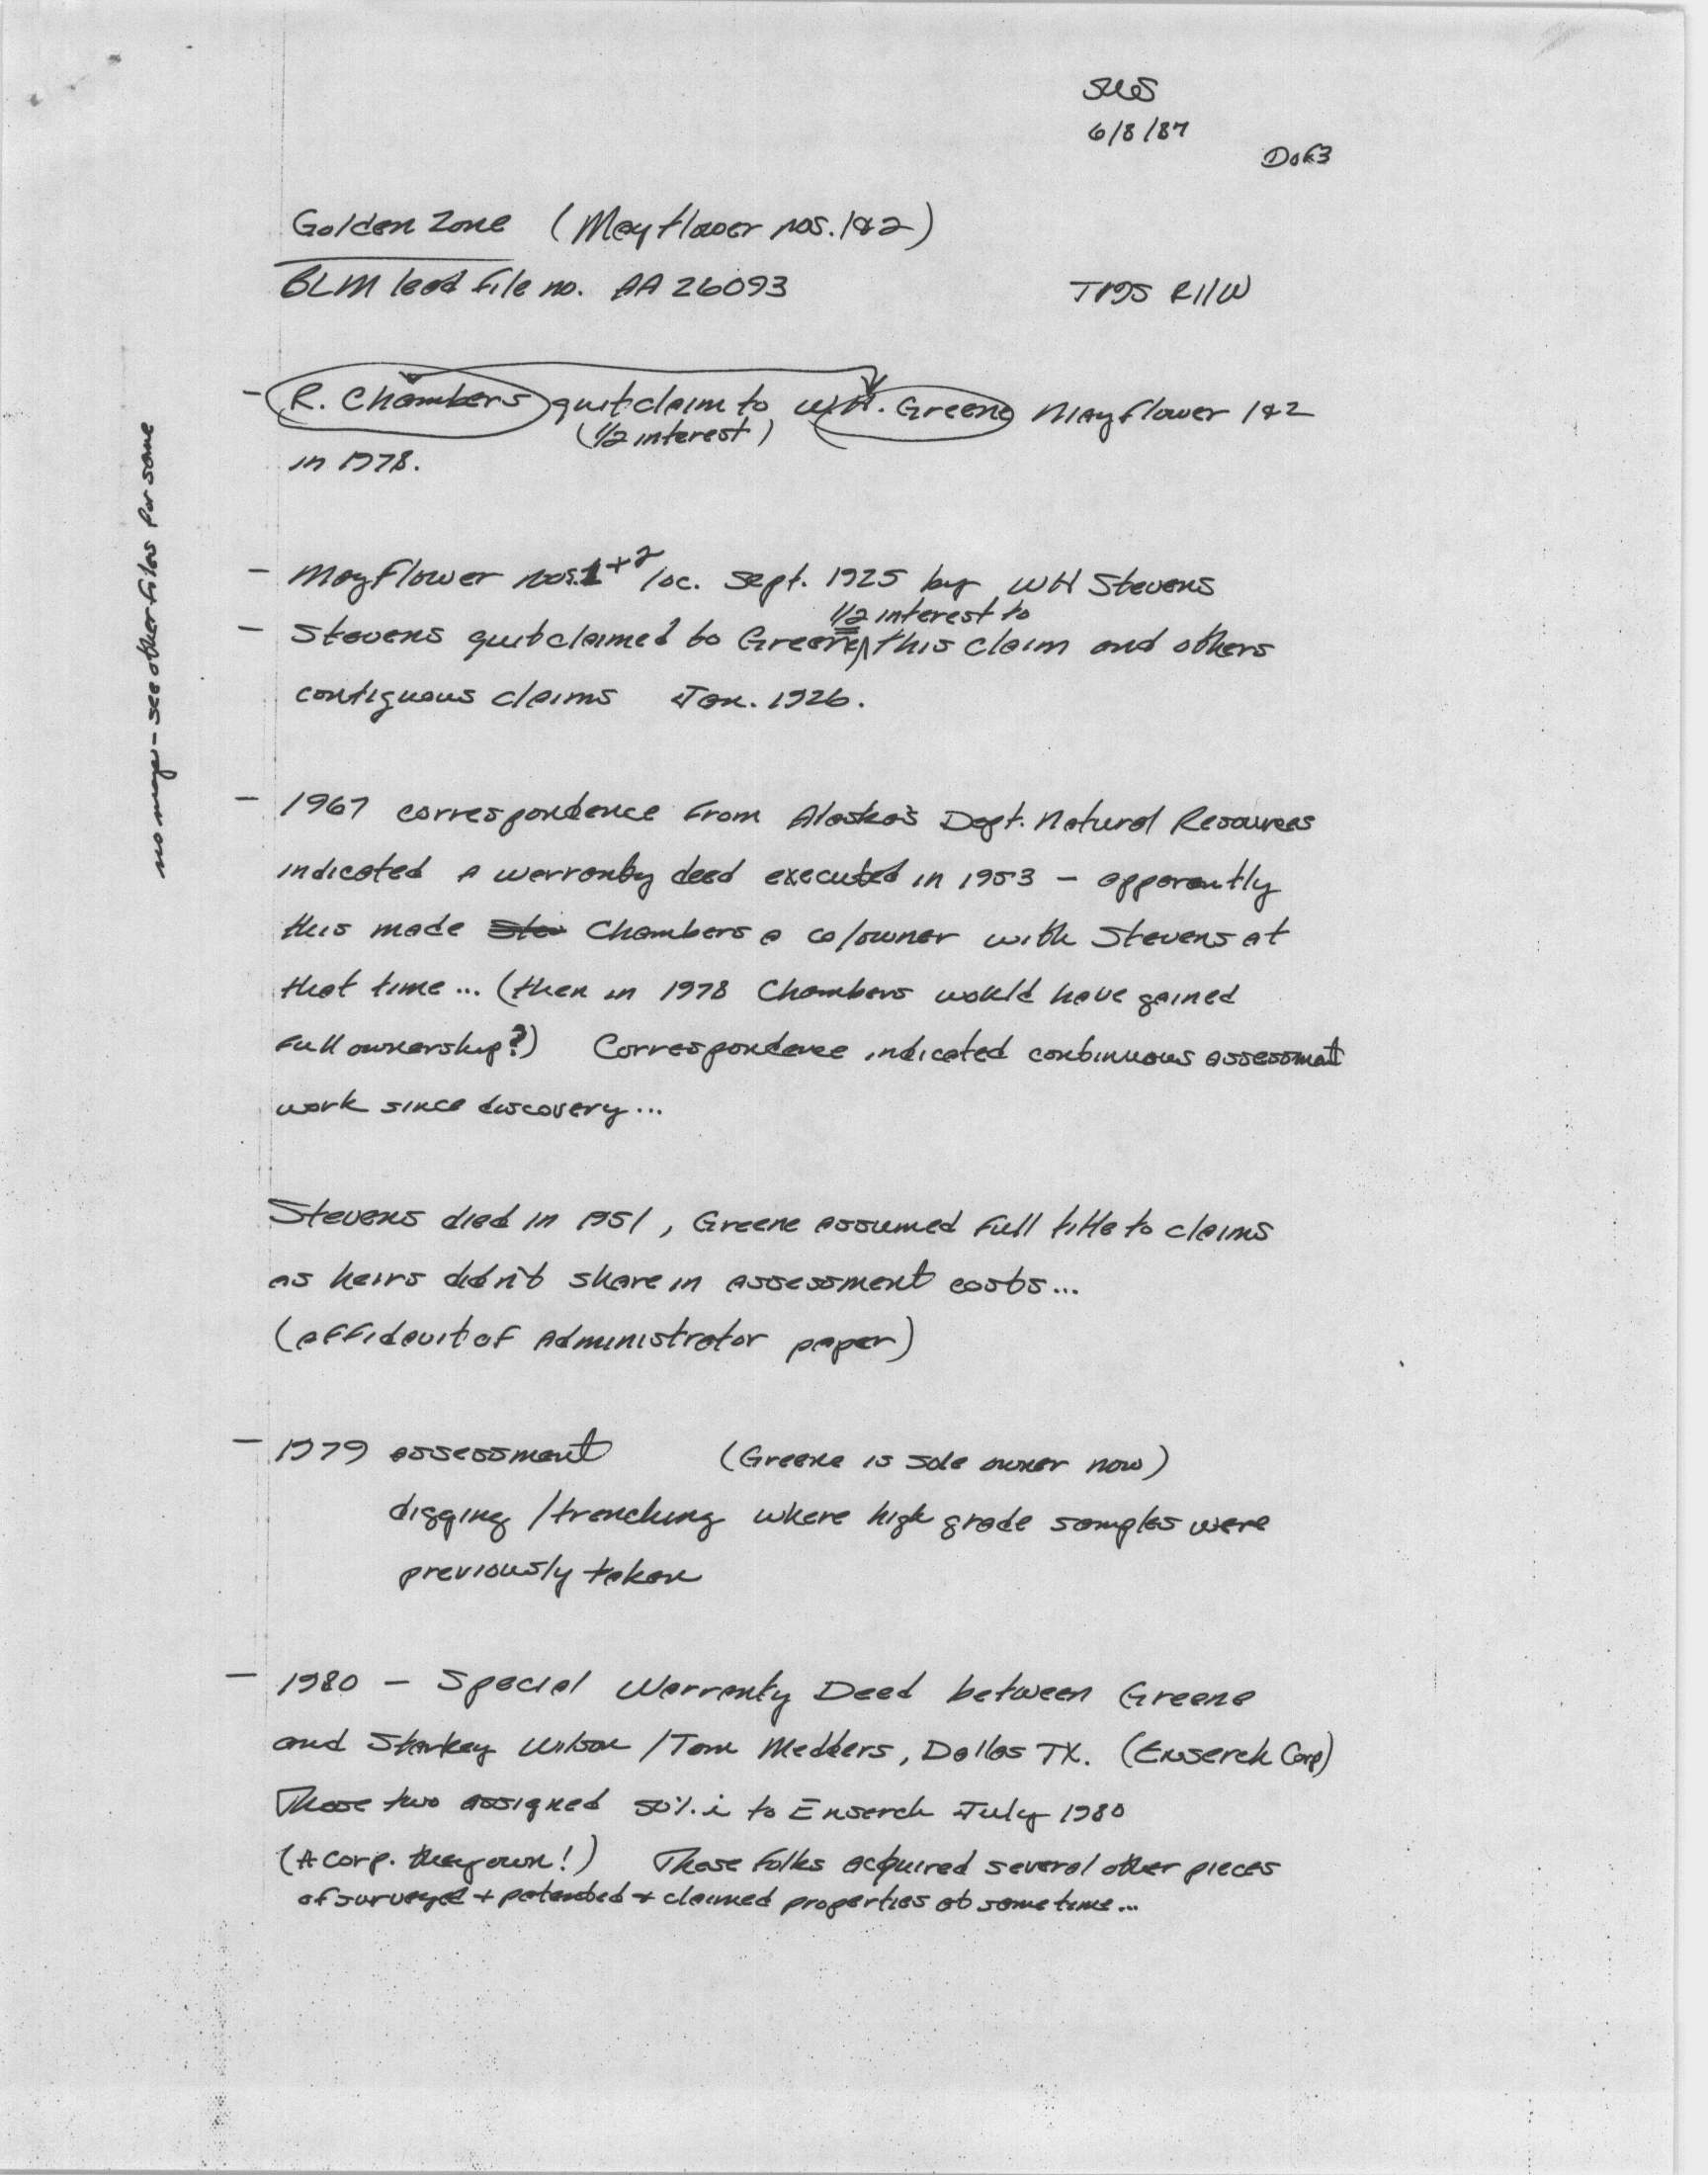 6/8/87
Golden Zone (Mayflower nos. 1&2)
BLM lead file no. AA 26093 T19S R11W
- R. Chambers quitclaim to WH. Greene Mayflower 1&2
(1/2 interest)
in 1978.
no maps - see other files for same
- Mayflower nos. 1+2 loc. Sept. 1925 by WH Stevens
1/2 interest to
- Stevens quitclaimed to Greene, this claim and others
contiguous claims Jan. 1926.
- 1967 correspondence from Alaska's Dept. Natural Resources
indicated a warranty deed executed in 1953 - apparently
this made Stev Chambers a co/owner with Stevens at
that time... (then in 1978 Chambers would have gained
full ownership?) Correspondence indicated continuous assessment
work since discovery...
Stevens died in 1951, Greene assumed full title to claims
as heirs didn't share in assessment costs...
(affidavit of Administrator paper)
- 1979 assessment (Greene is sole owner now)
digging/trenching where high grade samples were
previously taken
- 1980 - Special Warranty Deed between Greene
and Starkey Wilson/Tom Medders, Dallas TX. (Enserch Corp)
Those two assigned 50% i to Enserch July 1980
(A corp. they own!) These folks acquired several other pieces
of surveyed + patented + claimed properties at some time...